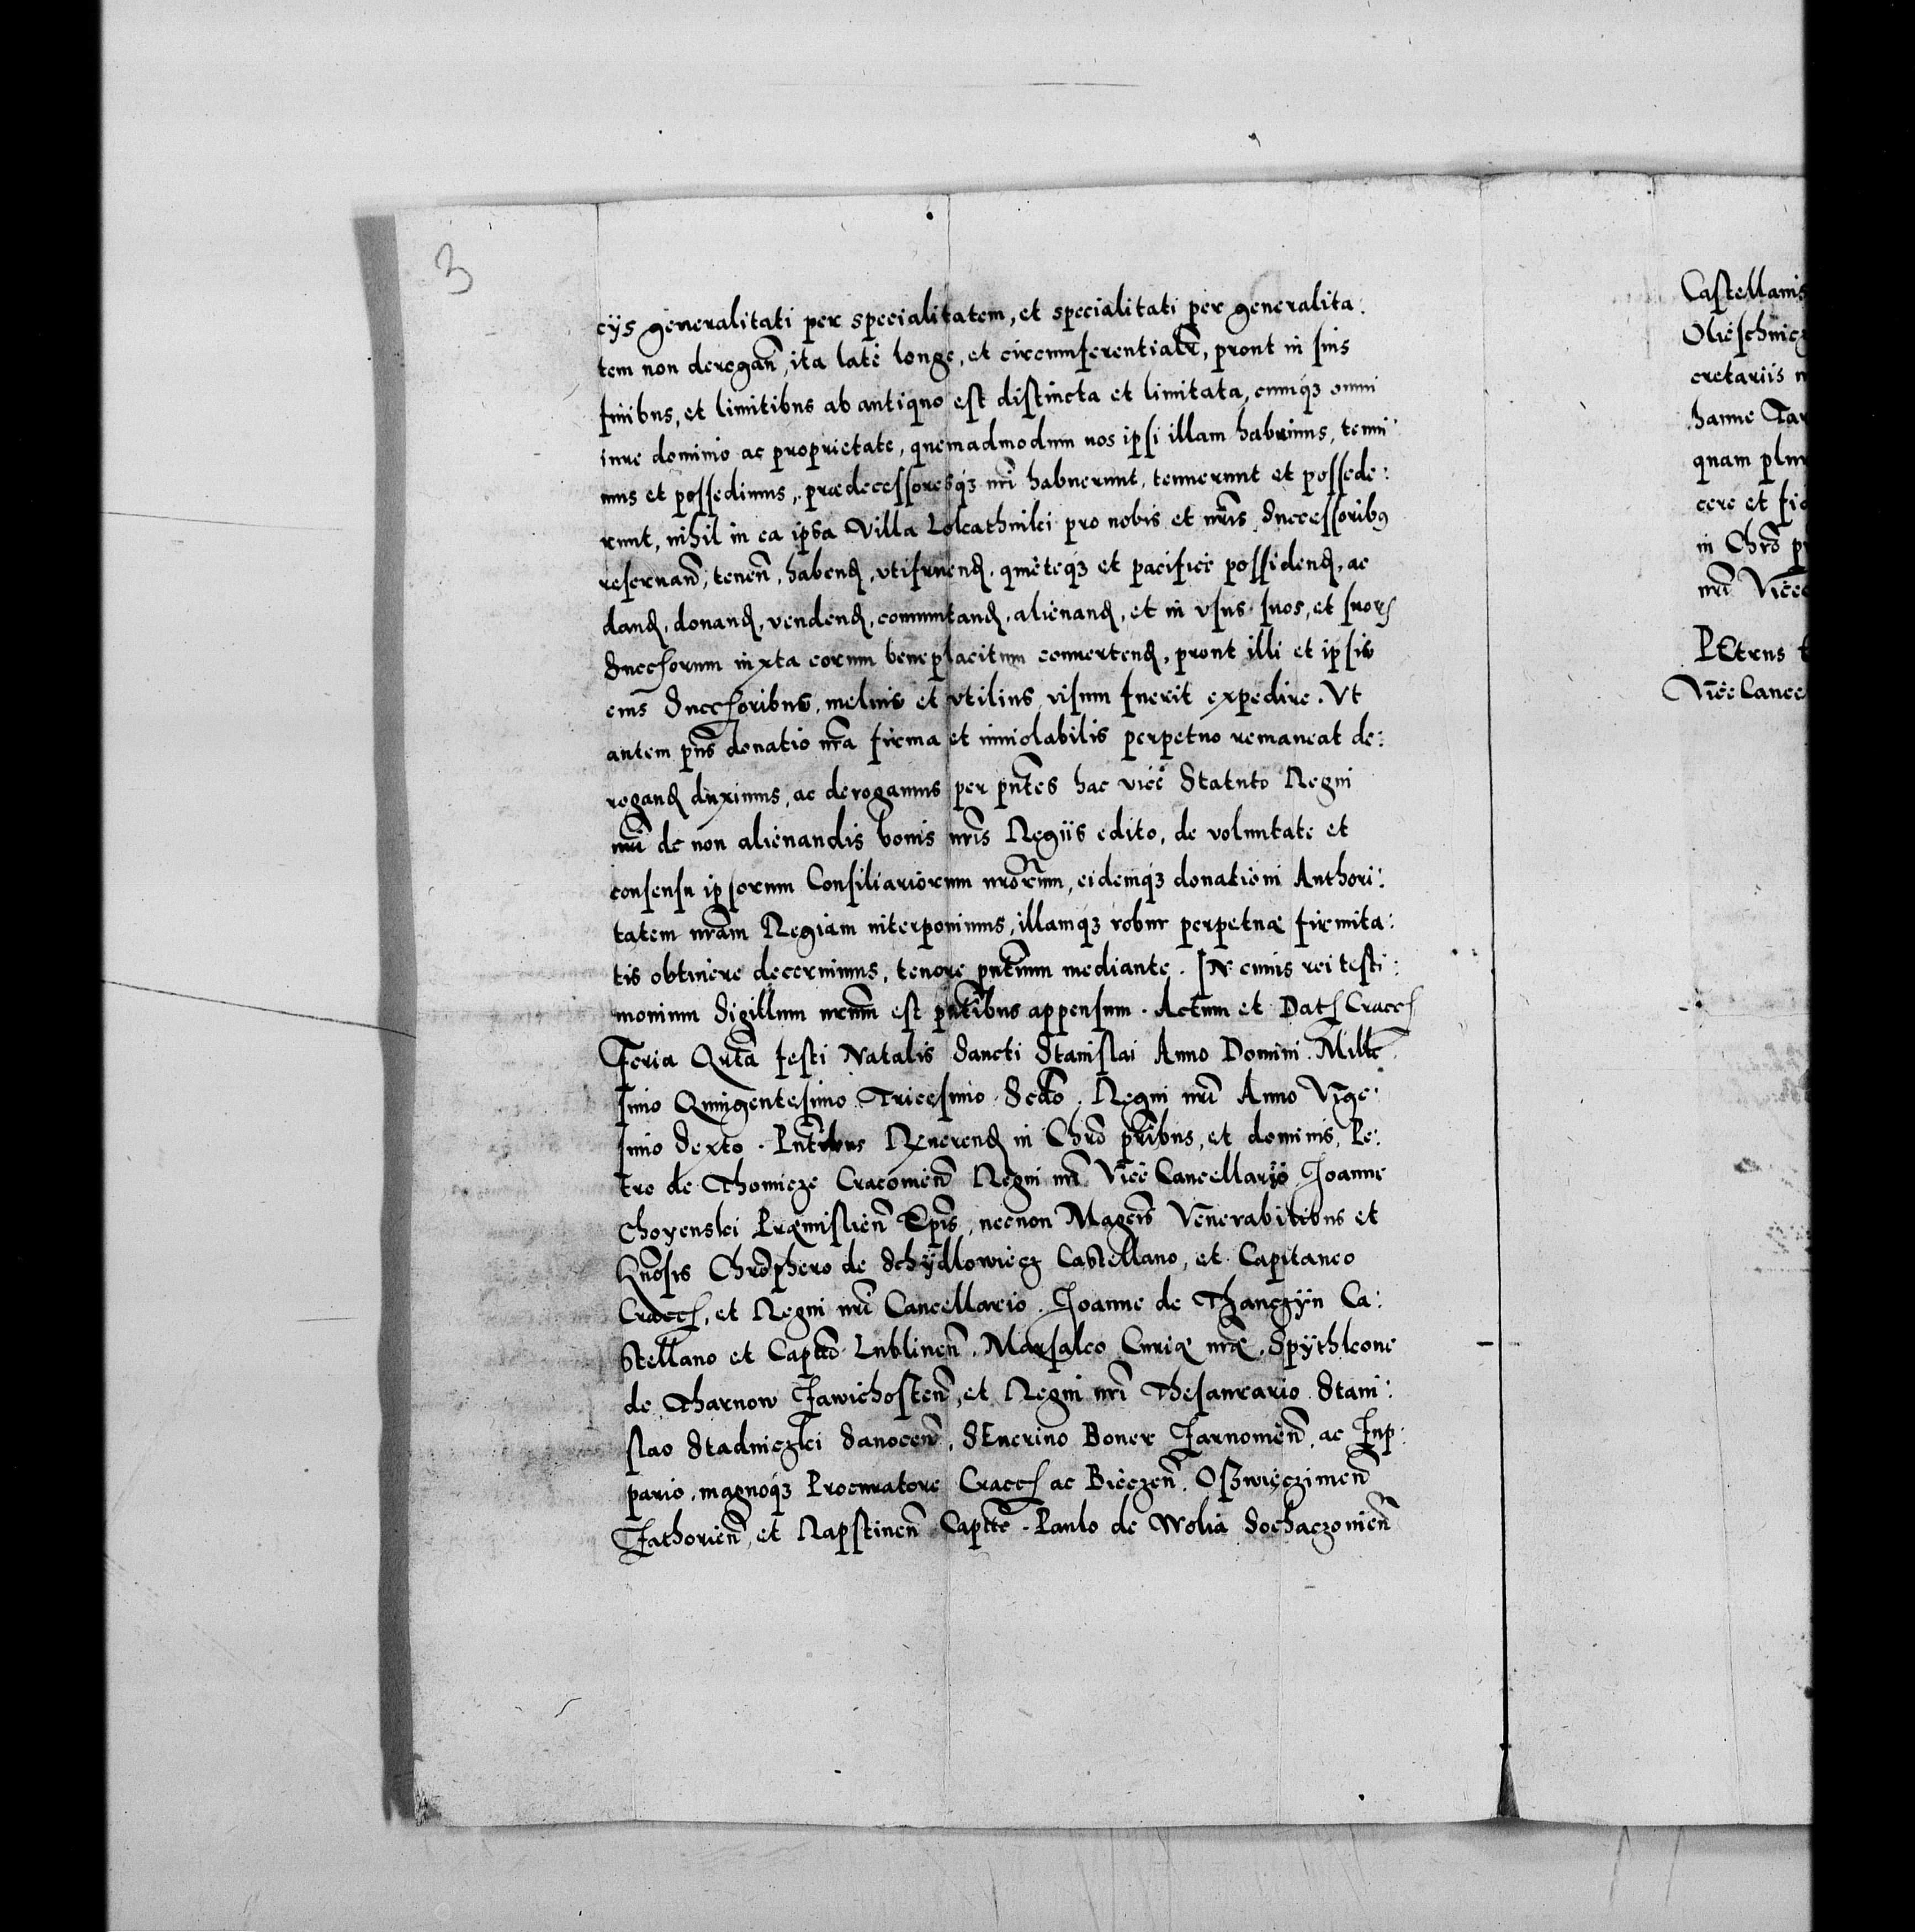 3
cijs generalitati per specialitatem, et specialitati per generalita:
tem non derogan̄, ita late longe, et circumferentialr̄, prout in suis
finibus, et limitibus ab antiquo est distincta et limitata, cumq₃ omni
iure dominio ac proprietate, quemadmodum nos ipsi illam habuimus, tenui
mus et possedimus, prædecessoresq₃ nr̄i habuerunt, tenuerunt et possede:
runt, nihil in ea ipsa Villa Lolcathniki pro nobis et nr̄is Successoribꝰ
reseruan̄, tenen̄, habenđ, vtifruenđ, quieteq₃ et pacifice possidenđ, ac
danđ, donanđ, vendenđ, comutanđ, alienanđ, et in vsus suos, et suorꝭ
Successorum iuxta eorum beneplacitum conuertenđ, prout illi et ipsis
eius Successoribus, melius et vtilius visum fuerit expedire. Vt
autem pn̄s donatio nr̄a firma et inuiolabilis perpetuo remaneat de:
roganđ duximus, ac derogamus per pn̄tes hac vice Statuto Regni
nr̄i de non alienandis bonis nr̄is Regiis edito, de voluntate et
consensu ipsorum Consiliariorum nr̄orum, eidemq₃ donationi Authori:
tatem nr̄am Regiam interponimus, illamq₃ robur perpetuæ firmita:
tis obtinere decernimus, tenore pn̄tium mediante. IN cuius rei testi:
monium Sigillum nr̄um est pn̄tibus appensum. Actum et Datꝭ Craccꝭ
Feria Qr̄ta festi Natalis Sancti Stanislai Anno Domini Mille
simo Quingentesimo Tricesimo Scđo, Regni nr̄i Anno Vige:
simo Sexto. Pn̄tibus Reuerenđ in Chr̄o pr̄ibus, et dominis, Pe:
tro de Thomicze Cracouien̄ Regni nr̄i Vice Cancellario Joanne
Choyenski Præmislien̄ Ep̄is, necnon Magcis Venerabilibus et
Gn̄osis Chr̄ophero de Schÿdlowiecz Castellano, et Capitaneo
Craccꝭ, et Regni nr̄i Cancellario. Joanne de Thanczÿn Ca:
stellano et Captō Lublinen̄, Marsalco Curiæ nr̄æ, Spÿthkone
de Tharnow Zawichosten̄, et Regni nr̄i Thesaurario Stani:
slao Stadniczki Sanocen̄, SEuerino Boner Zarnowien̄, ac Zup:
pario, magnoq₃ Procuratore Craccꝭ ac Bieczen̄. Oszwieczimen̄
Zathorien̄, et Rapstinen̄ Captō. Paulo de Wolia Sochaczowien̄
Castellanis
cretariis
quam
cere et
in Chr̄o
nr̄i Vice
PEtrus
Vice Cance